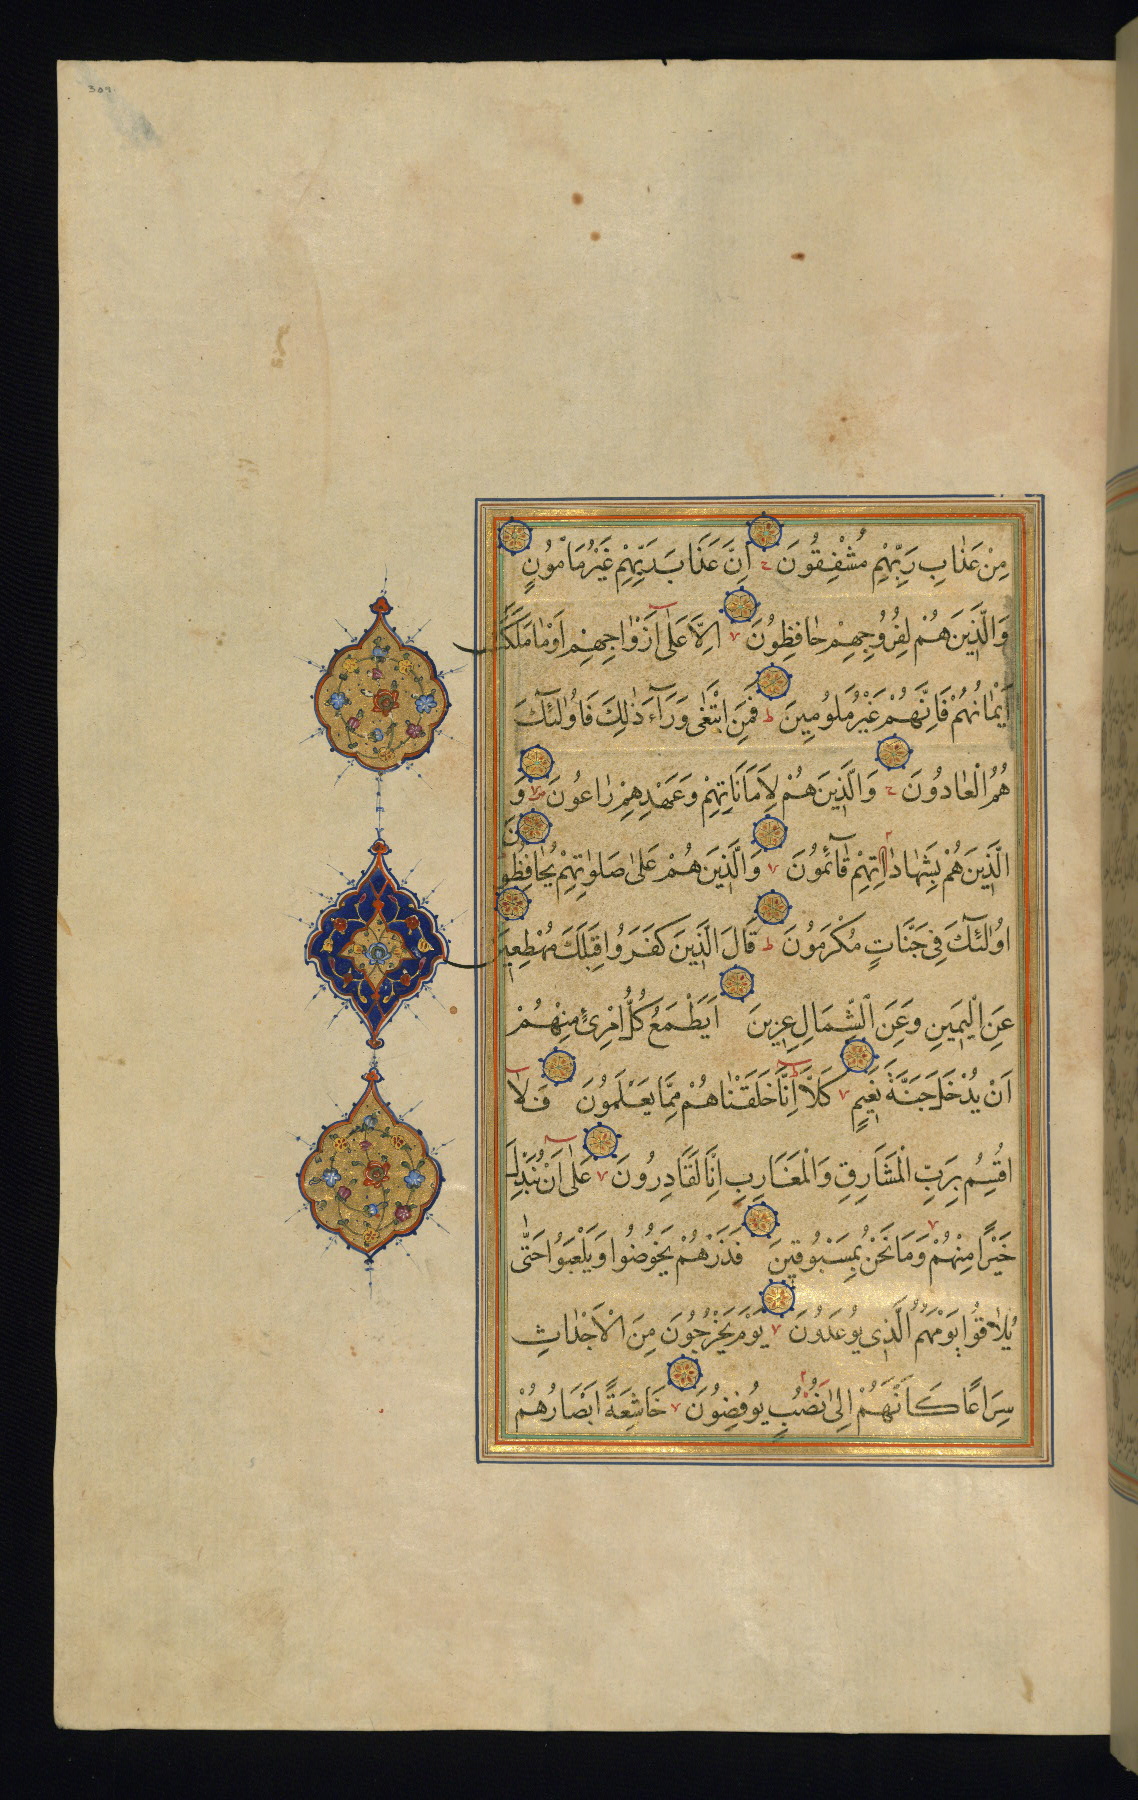 309
مِنْ عَذَابِ رَبِّهِمْ مُشْفِقُونَ ۝ اِنَّ عَذَابَ رَبِّهِمْ غَيْرُ مَأْمُونٍ ۝
وَالَّذِينَ هُمْ لِفُرُوجِهِمْ حَافِظُونَ ۝ اِلَّا عَلٰى اَزْوَاجِهِمْ اَوْ مَا مَلَكَتْ
اَيْمَانُهُمْ فَاِنَّهُمْ غَيْرُ مَلُومِينَ ۝ فَمَنِ ابْتَغٰى وَرَآءَ ذٰلِكَ فَاُولٰٓئِكَ
هُمُ الْعَادُونَ ۝ وَالَّذِينَ هُمْ لِاَمَانَاتِهِمْ وَعَهْدِهِمْ رَاعُونَ ۝ وَ
الَّذِينَ هُمْ بِشَهَادَاتِهِمْ قَآئِمُونَ ۝ وَالَّذِينَ هُمْ عَلٰى صَلَوتِهِمْ يُحَافِظُونَ ۝
اُولٰٓئِكَ فِى جَنَّاتٍ مُكْرَمُونَ ۝ فَالَ الَّذِينَ كَفَرُوا قِبَلَكَ مُهْطِعِينَ ۝
عَنِ الْيَمِينِ وَعَنِ الشِّمَالِ عِزِينَ ۝ اَيَطْمَعُ كُلُّ امْرِئٍ مِنْهُمْ
اَنْ يُدْخَلَ جَنَّةَ نَعِيمٍ ۝ كَلَّا اِنَّا خَلَقْنَاهُمْ مِمَّا يَعْلَمُونَ ۝ فَلَا
اُقْسِمُ بِرَبِّ الْمَشَارِقِ وَالْمَغَارِبِ اِنَّا لَقَادِرُونَ ۝ عَلٰى اَنْ نُبَدِّلَ
خَيْرًا مِنْهُمْ وَمَا نَحْنُ بِمَسْبُوقِينَ ۝ فَذَرْهُمْ يَخُوضُوا وَيَلْعَبُوا حَتّٰى
يُلَاقُوا يَوْمَهُمُ الَّذِى يُوعَدُونَ ۝ يَوْمَ يَخْرُجُونَ مِنَ الْاَجْدَاثِ
سِرَاعًا كَاَنَّهُمْ اِلٰى نُصُبٍ يُوفِضُونَ ۝ خَاشِعَةً اَبْصَارُهُمْ